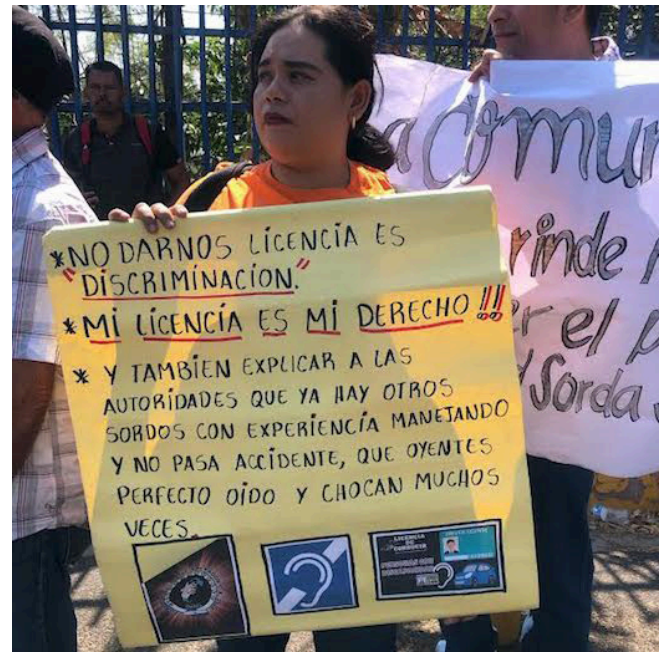 *NO DARNOS LICENCIA ES
"DISCRIMINACION."
*MI LICENCIA ES MI DERECHO!!
* Y TAMBIEN EXPLICAR A LAS
AUTORIDADES QUE YA HAY OTROS
SORDOS CON EXPERIENCIA MANEJANDO
Y NO PASA ACCIDENTE, QUE OYENTES
PERFECTO OIDO Y CHOCAN MUCHOS
VECES.
LICENCIA
DE
CONDUCIR
a Comun
rinde
er el p
d Sorda